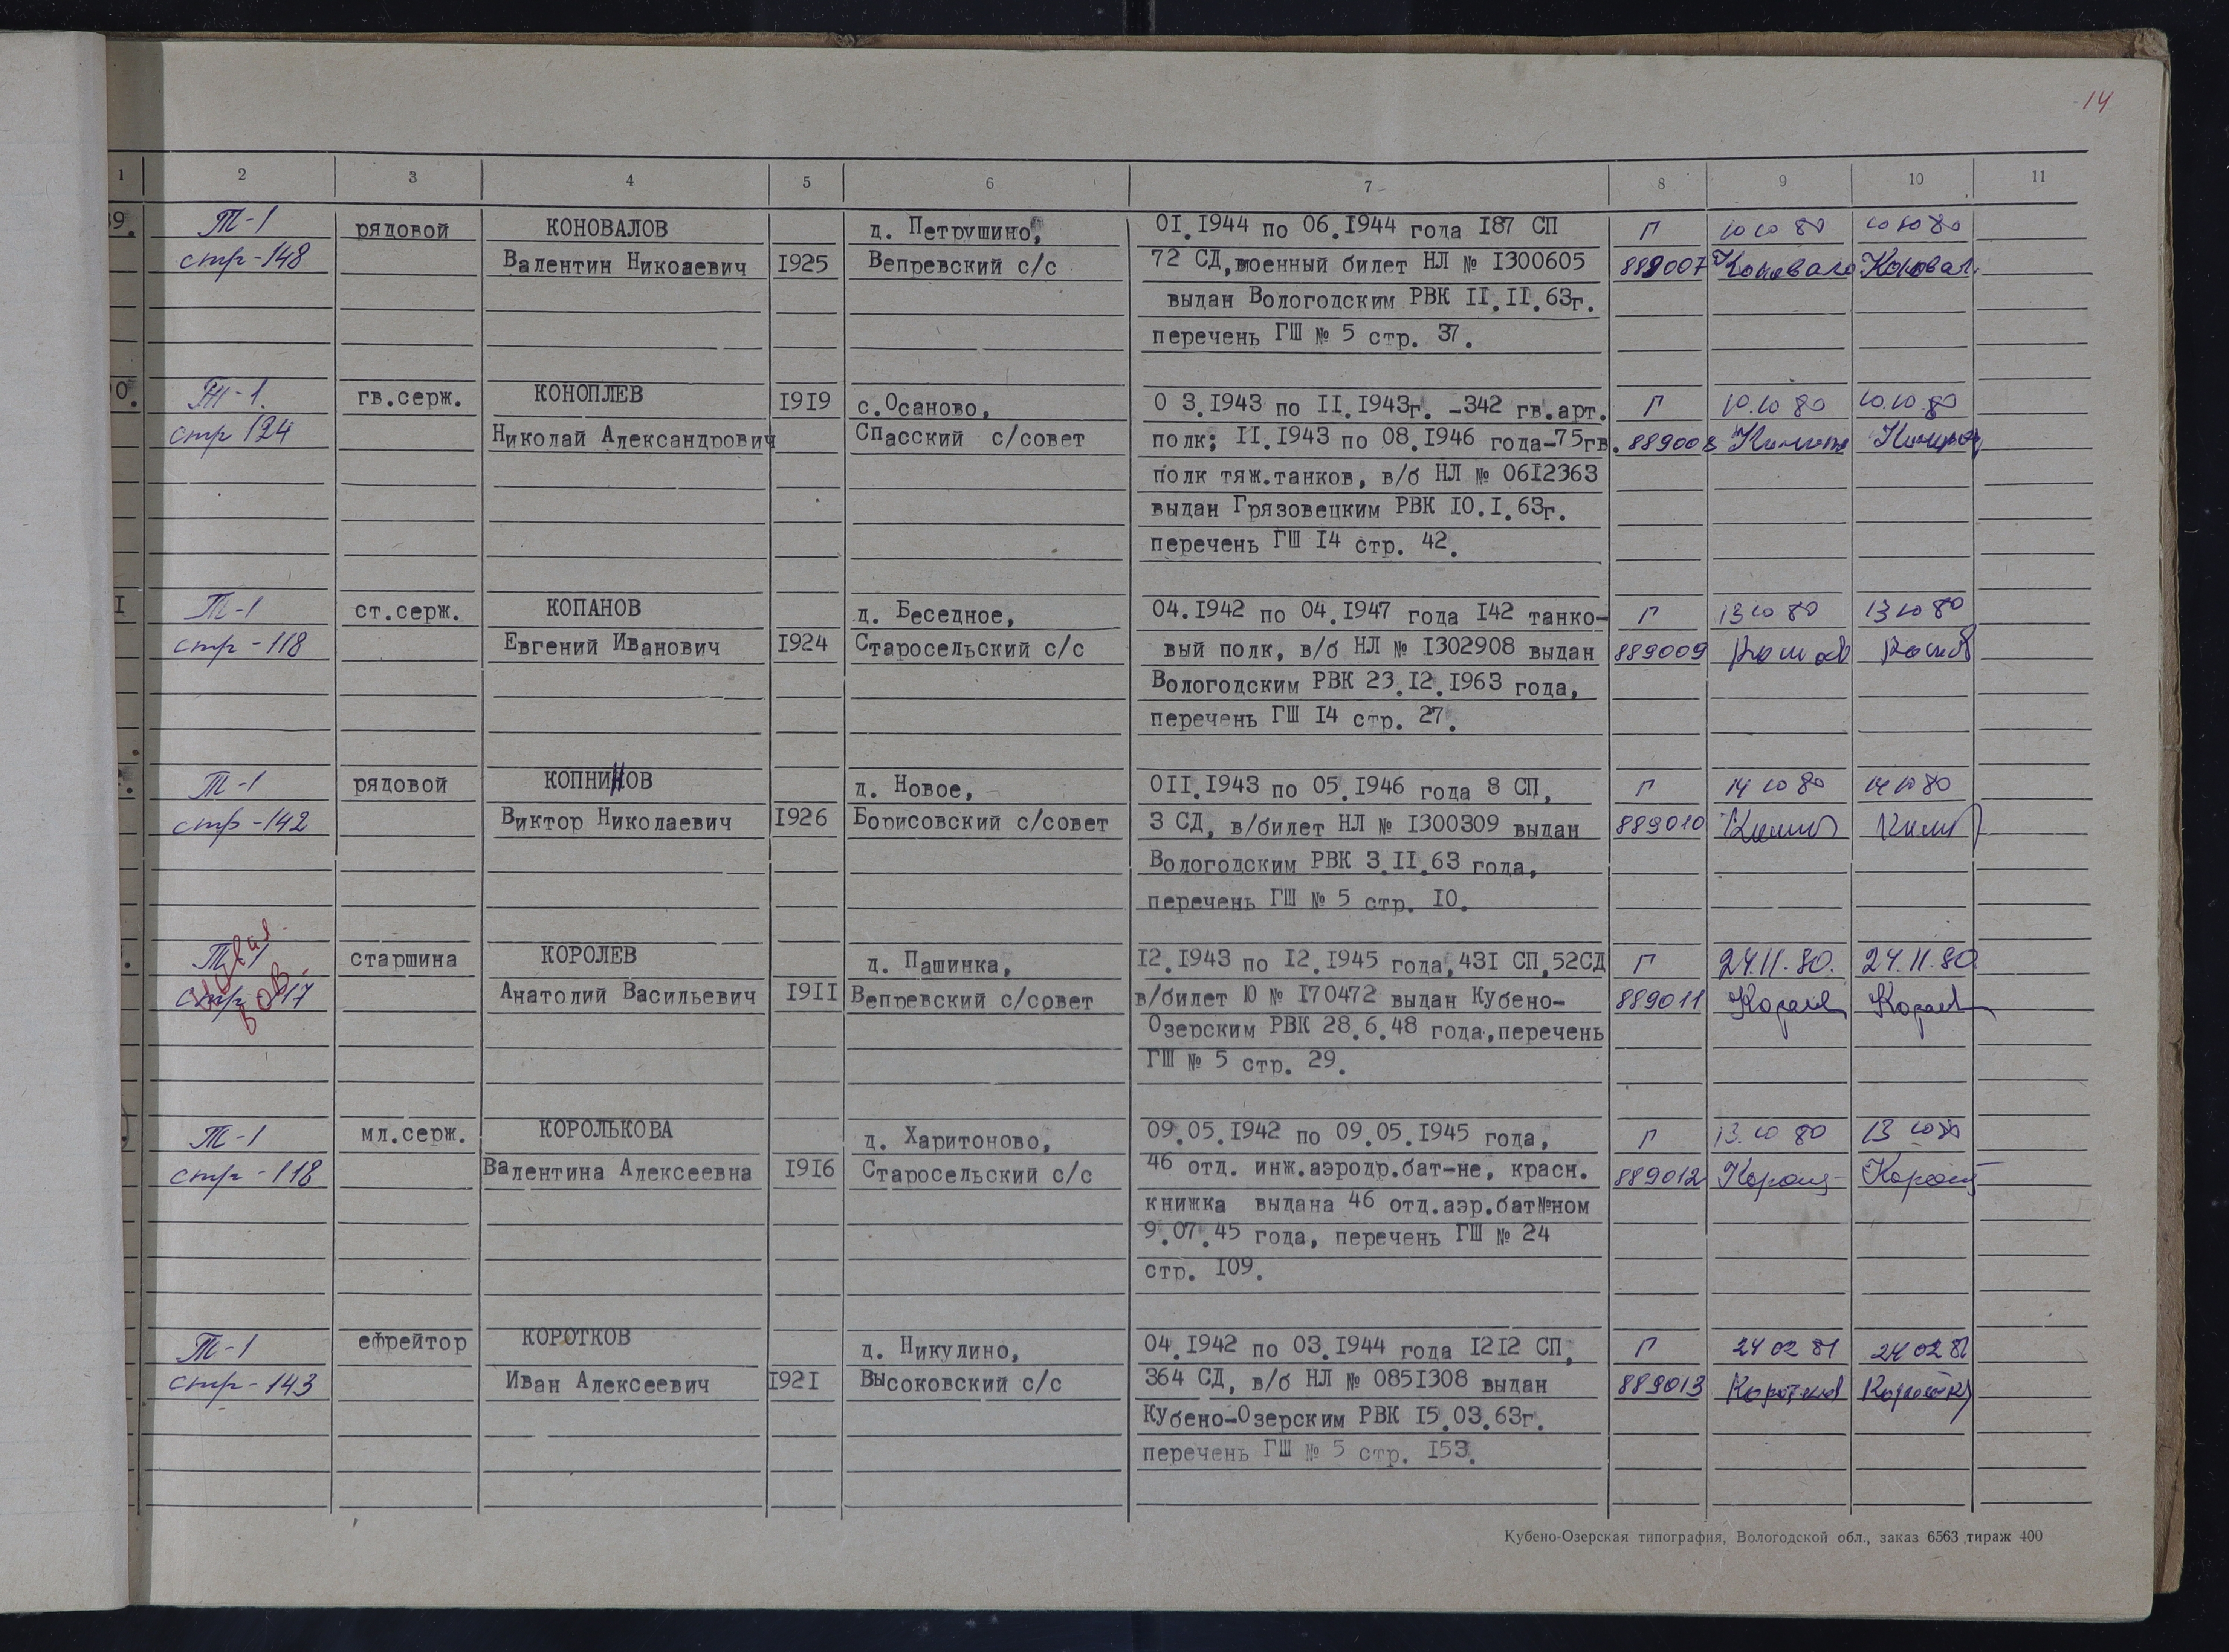 14
1 2 3 4 5 6 7 8 9 10 11
39. Т-1 рядовой КОНОВАЛОВ д. Петрушино, 0I.I944 по 06.I944 года I87 СП Г 10 10 80 10 10 80
стр-148 Валентин Никоаевич I925 Вепревский с/с 72 СД,военный билет НЛ № I300605 889007 Коновало Коновал.
выдан Вологодским РВК II.II.63г.
перечень ГШ № 5 стр. 37.
0. Т-1. гв.серж. КОНОПЛЕВ I9I9 с.Осаново, 0 3.I943 по II.I943г. -342 гв.арт. Г 10.10 80 10.10.80
стр 124 Николай Александрович Спасский с/совет полк; II.I943 по 08.I946 года-75гв. 889008
полк тяж.танков, в/б НЛ № 06I2363
выдан Грязовецким РВК I0.I.63г.
перечень ГШ I4 стр. 42.
I Т-1 ст.серж. КОПАНОВ д. Беседное, 04.I942 по 04.I947 года I42 танко- Г 13 10 80 13 10 80
стр-118 Евгений Иванович I924 Старосельский с/с вый полк, в/б НЛ № I302908 выдан 889009
Вологодским РВК 23.I2.I963 года,
перечень ГШ I4 стр. 27.
Т-1 рядовой КОПНИНОВ д. Новое, 0II.I943 по 05.I946 года 8 СП, Г 14 10 80 14 10 80
стр-142 Виктор Николаевич I926 Борисовский с/совет 3 СД, в/билет НЛ № I300309 выдан 889010
Вологодским РВК 3.II.63 года,
перечень ГШ № 5 стр. I0.
Т-1 старшина КОРОЛЕВ д. Пашинка, I2.I943 по I2.I945 года,43I СП,52СД Г 24.11.80. 24.11.80
стр 117 Анатолий Васильевич I9II Вепревский с/совет в/билет Ю № I70472 выдан Кубено- 889011 Королев Королев
Озерским РВК 28.6.48 года,перечень
ГШ № 5 стр. 29.
Т-1 мл.серж. КОРОЛЬКОВА д. Харитоново, 09.05.I942 по 09.05.I945 года, Г 13.10 80 13 10 80
стр-118 Валентина Алексеевна I9I6 Старосельский с/с 46 отд. инж.аэродр.бат-не, красн. 889012
книжка выдана 46 отд.аэр.бат№ном
9.07.45 года, перечень ГШ № 24
стр. I09.
Т-1 ефрейтор КОРОТКОВ д. Никулино, 04.I942 по 03.I944 года I2I2 СП, Г 24 02 81 24 02 81
стр-143 Иван Алексеевич I92I Высоковский с/с 364 СД, в/б НЛ № 085I308 выдан 889013 Коротков
Кубено-Озерским РВК I5.03.63г.
перечень ГШ № 5 стр. I53.
Кубено-Озерская типография, Вологодской обл., заказ 6563 тираж 400